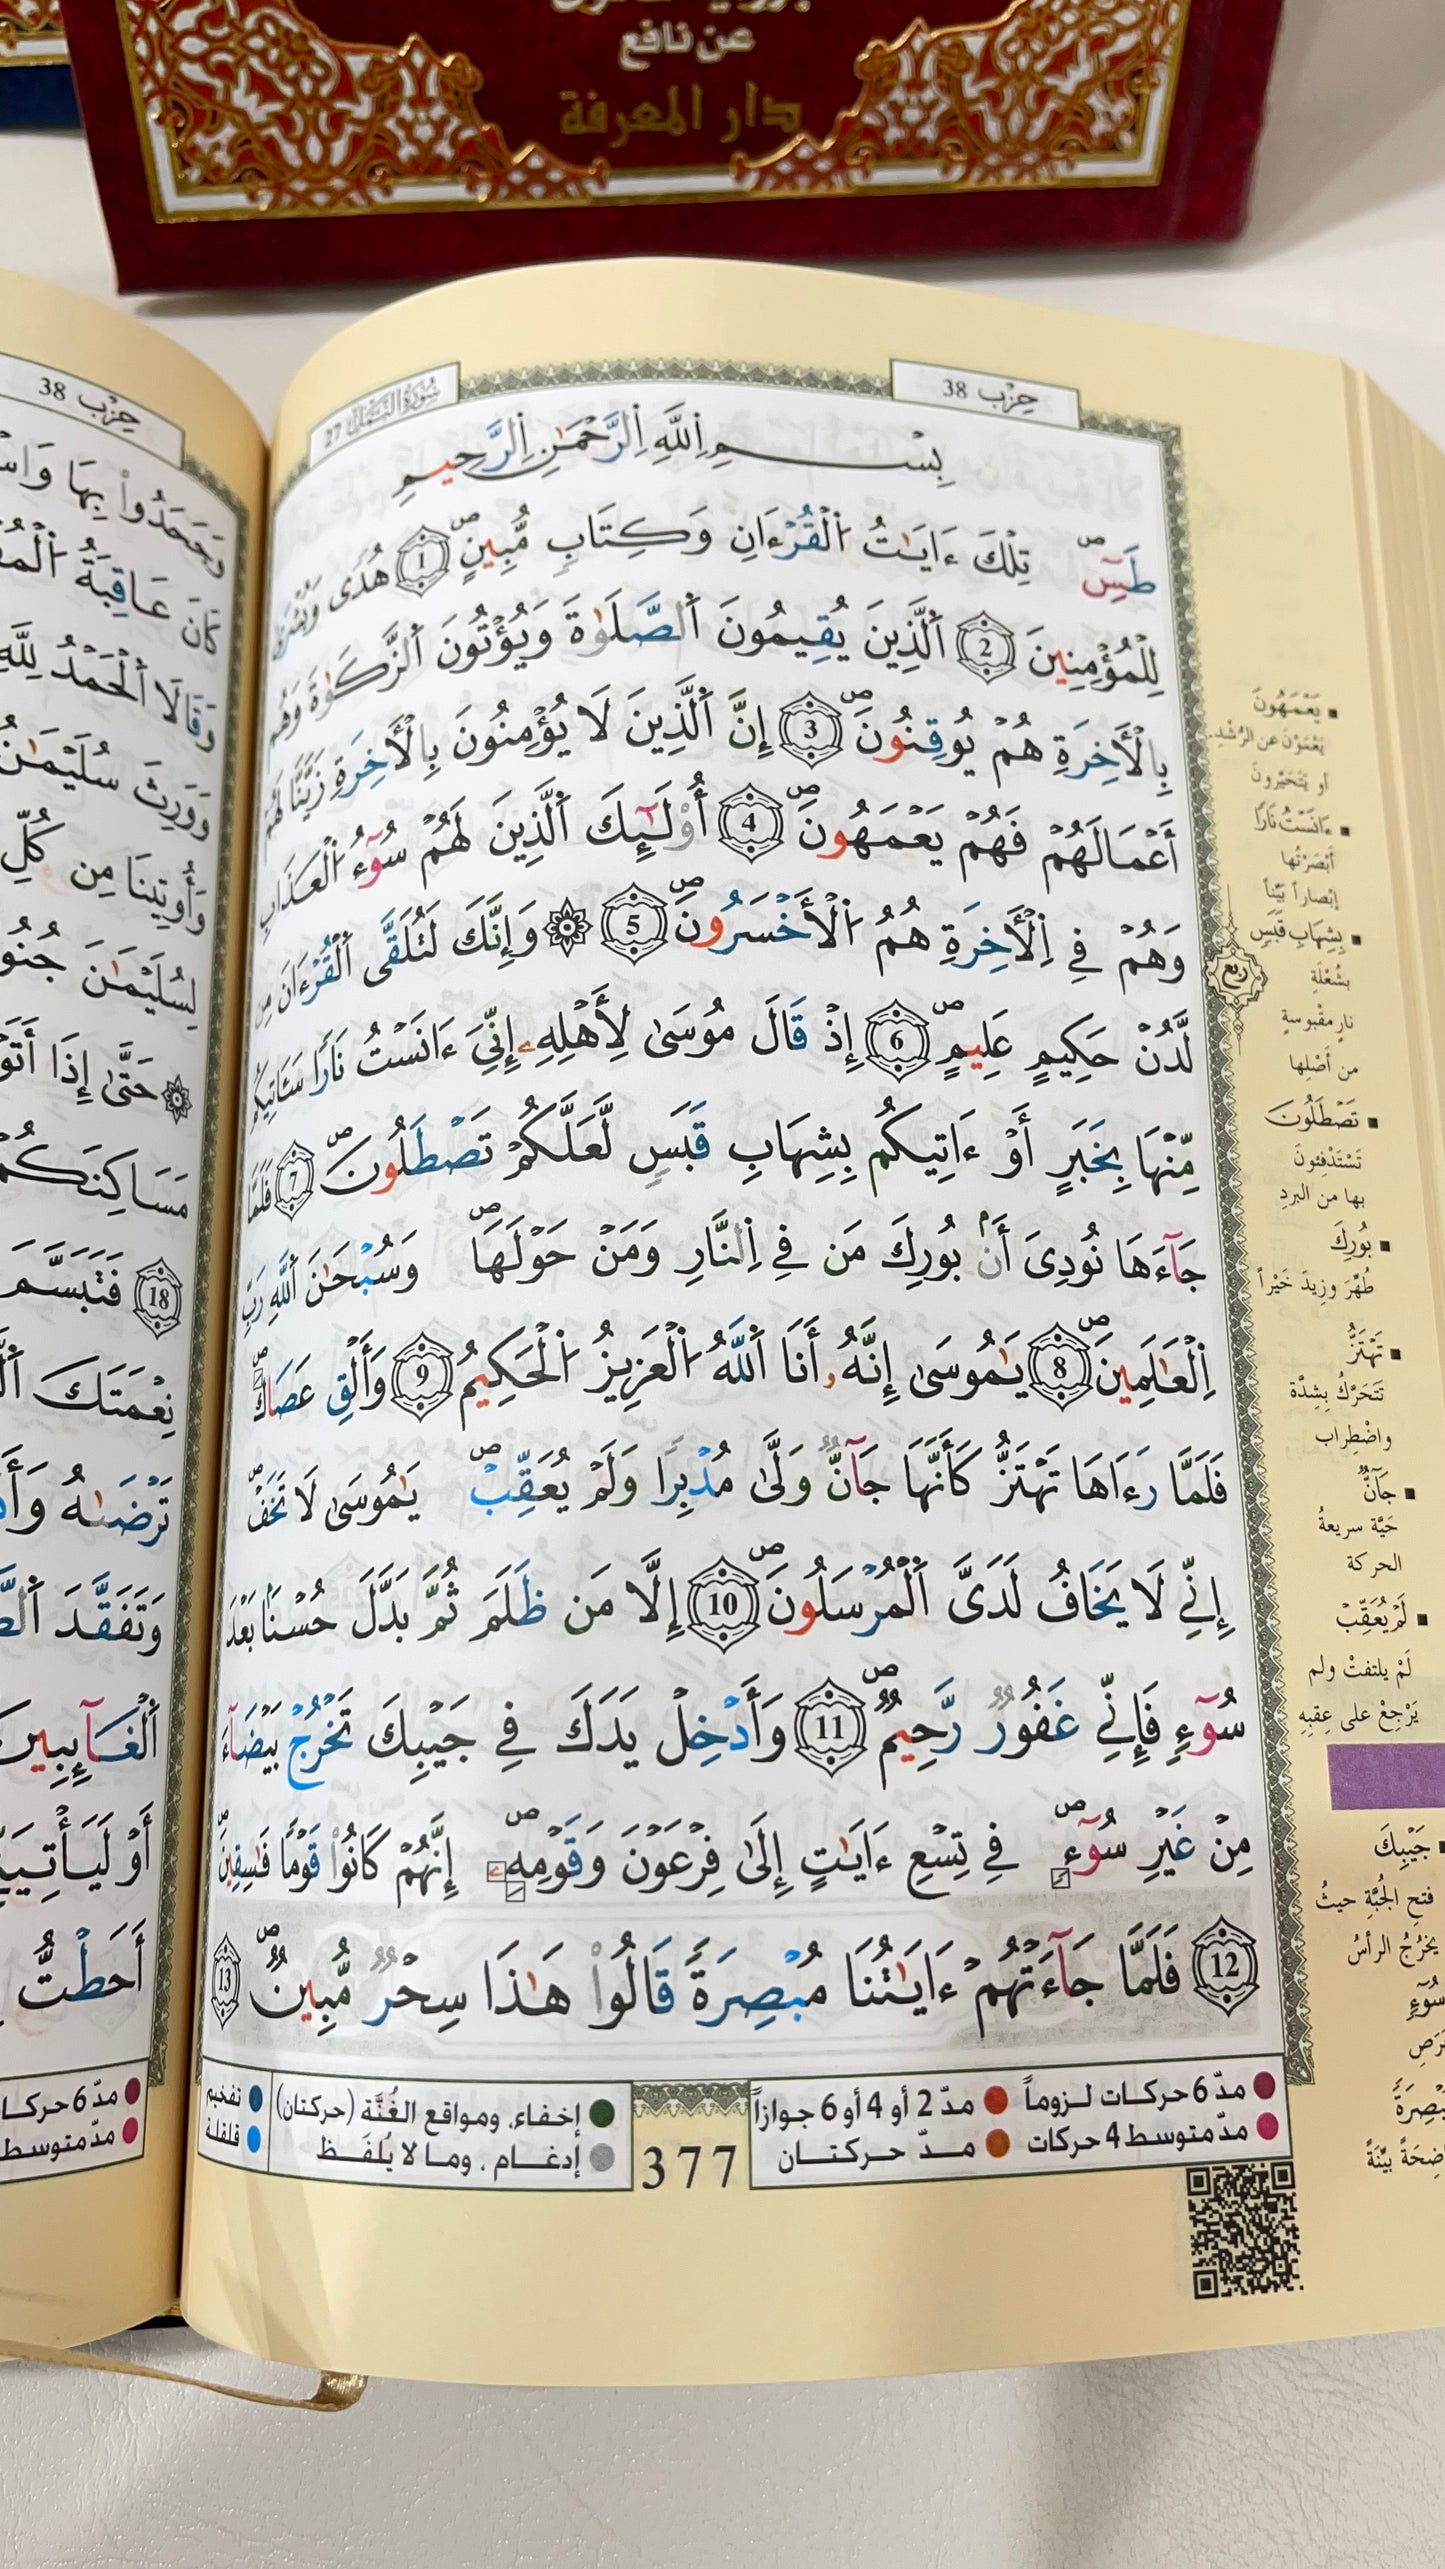 عن نافع
دار المعرفة
حِزْب 38
سُورَةُ النَّمْلِ 27
بِسْمِ اِ۬للَّهِ اِ۬لرَّحْمَٰنِ اِ۬لرَّحِيمِ
طَسِٓۖ تِلْكَ ءَايَٰتُ اُ۬لْقُرْءَانِ وَكِتَابٖ مُّبِينٍۖ 1 هُدٗى وَبُشْر۪ىٰ
لِلْمُؤْمِنِينَ 2 اَ۬لَّذِينَ يُقِيمُونَ اَ۬لصَّلَوٰةَ وَيُؤْتُونَ اَ۬لزَّكَوٰةَ وَهُم
بِالْأَخِرَةِ هُمْ يُوقِنُونَۖ 3 إِنَّ اَ۬لَّذِينَ لَا يُؤْمِنُونَ بِالْأَخِرَةِ زَيَّنَّا لَهُمْ
أَعْمَالَهُمْ فَهُمْ يَعْمَهُونَۖ 4 أُوْلَٰٓئِكَ اَ۬لَّذِينَ لَهُمْ سُوٓءُ اُ۬لْعَذَابِ
وَهُمْ فِي اِ۬لْأَخِرَةِ هُمُ اُ۬لْأَخْسَرُونَۖ 5 ۞ وَإِنَّكَ لَتُلَقَّى اَ۬لْقُرْءَانَ مِن
لَّدُنْ حَكِيمٍ عَلِيمٍۖ 6 إِذْ قَالَ مُوسَىٰ لِأَهْلِهِۦ إِنِّيَ ءَانَسْتُ نَارٗا سَـَٔاتِيكُم
مِّنْهَا بِخَبَرٍ أَوْ ءَاتِيكُم بِشِهَابِ قَبَسٖ لَّعَلَّكُمْ تَصْطَلُونَۖ 7 فَلَمَّا
جَآءَهَا نُودِيَ أَنۢ بُورِكَ مَن فِي اِ۬لنَّارِ وَمَنْ حَوْلَهَاۖ وَسُبْحَٰنَ اَ۬للَّهِ رَبِّ
اِ۬لْعَٰلَمِينَۖ 8 يَٰمُوسَىٰ إِنَّهُۥ أَنَا اَ۬للَّهُ اُ۬لْعَزِيزُ اُ۬لْحَكِيمُ 9 وَأَلْقِ عَصَاكَۖ
فَلَمَّا رَءَاهَا تَهْتَزُّ كَأَنَّهَا جَآنّٞ وَلَّىٰ مُدْبِرٗا وَلَمْ يُعَقِّبْۖ يَٰمُوسَىٰ لَا تَخَفْۖ
إِنِّي لَا يَخَافُ لَدَيَّ اَ۬لْمُرْسَلُونَۖ 10 إِلَّا مَن ظَلَمَ ثُمَّ بَدَّلَ حُسْنَۢا بَعْدَ
سُوٓءٖ فَإِنِّي غَفُورٞ رَّحِيمٞۖ 11 وَأَدْخِلْ يَدَكَ فِي جَيْبِكَ تَخْرُجْ بَيْضَآءَ
مِنْ غَيْرِ سُوٓءٖۖ فِي تِسْعِ ءَايَٰتٍ إِلَىٰ فِرْعَوْنَ وَقَوْمِهِۦۖ إِنَّهُمْ كَانُواْ قَوْمٗا فَٰسِقِينَۖ
12 فَلَمَّا جَآءَتْهُمْ ءَايَٰتُنَا مُبْصِرَةٗ قَالُواْ هَٰذَا سِحْرٞ مُّبِينٞۖ 13
يَعْمَهُونَ
يَعْمَوْنَ عن الرُّشدِ.
أو يَتَحَيَّرونَ
ءَانَسْتُ نَارًا
أَبْصَرْتُها
إبْصاراً بَيِّناً
بِشِهَابِ قَبَسٍ
بشُعْلَةِ
نارٍ مقْبوسةٍ
من أَصْلِها
ربع
تَصْطَلُونَ
تَسْتَدْفِئونَ
بها من البردِ
بُورِكَ
طُهِّرَ وزِيدَ خَيْراً
تَهْتَزُّ
تَتَحَرَّكُ بِشِدَّة
واضْطِراب
جَآنٌّ
حَيَّة سريعةُ
الحركة
لَمْ يُعَقِّبْ
لَمْ يلتفتْ ولم
يَرْجِعْ على عِقِبِهِ
جَيْبِكَ
فتحِ الجُبَّةِ حيثُ
يَخرُجُ الرأسُ
سُوٓءٍ
مدّ 6 حركات لـزوماً
مدّ 2 أو 4 أو 6 جوازاً
مدّ متوسط 4 حركات
مـدّ حركتـــان
إخفاء، ومواقع الغُنَّة (حركتان)
إدغــام ، وما لا يُلفَــظ
تفخيم
قلقلة
377
حِزْب 38
وَجَحَدُواْ بِهَا
كَانَ عَاقِبَةُ
وَقَالَا اَ۬لْحَمْدُ لِلَّهِ
وَوَرِثَ سُلَيْمَٰنُ
وَأُوتِينَا مِن كُلِّ
لِسُلَيْمَٰنَ جُنُو
۞ حَتَّىٰ إِذَا أَتَوْ
مَسَاكِنَكُمْ
18 فَتَبَسَّمَ
نِعْمَتَكَ
تَرْضَىٰهُ
وَتَفَقَّدَ
اَ۬لْغَآئِبِينَ
أَوْ لَيَأْتِيَ
أَحَطتُّ
مدّ 6 حركا
مدّ متوسط